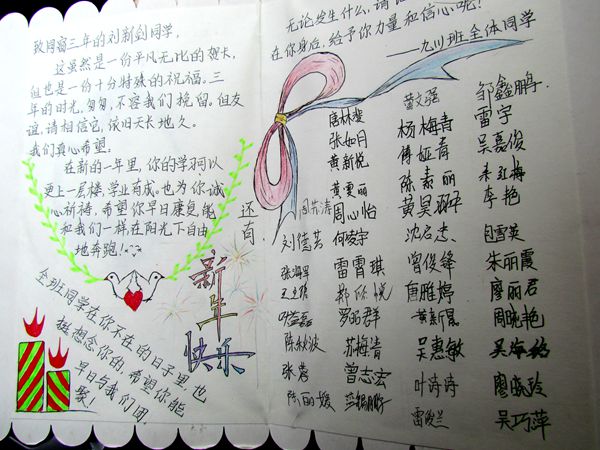 致同窗三年的刘新剑同学,
这虽然是一份平凡无比的贺卡,
但也是一份十分特殊的祝福,三
年的时光,匆匆,不容我们挽留,但友
谊,请相信它,依旧天长地久。
我们真心希望,
在新的一年里,你的学习可以
更上一层楼,学业有成,也为你诚
心祈祷,希望你早日康复,能
和我们一样在阳光下自由
地奔跑!
还有,
新年快乐
全班同学在你不在的日子里也
挺想念你的,希望你能
早日与我们团
聚!
无论发生什么,请
在你身后,给予你力量和信心呢!
——九川班全体同学
唐林檬 黄文强 邹鑫鹏
张如月 杨梅青 雷宇
黄新悦 傅娅青 吴嘉俊
黄雯丽 陈素丽 李红梅
周苏涛 周心怡 黄昊翀 李艳
刘德芸 何凌宇 沈启杰 包雪英
张海军 雷霄琪 曾俊锋 朱丽霞
郑欣悦 唐雅婷 廖丽君
叶磊磊 罗丽群 黄新晟 周晓艳
陈秋波 苏梅清 吴惠敏
张蓉 曾志宏 叶诗诗 廖晓玲
陈丽媛 雷俊兰 吴巧萍